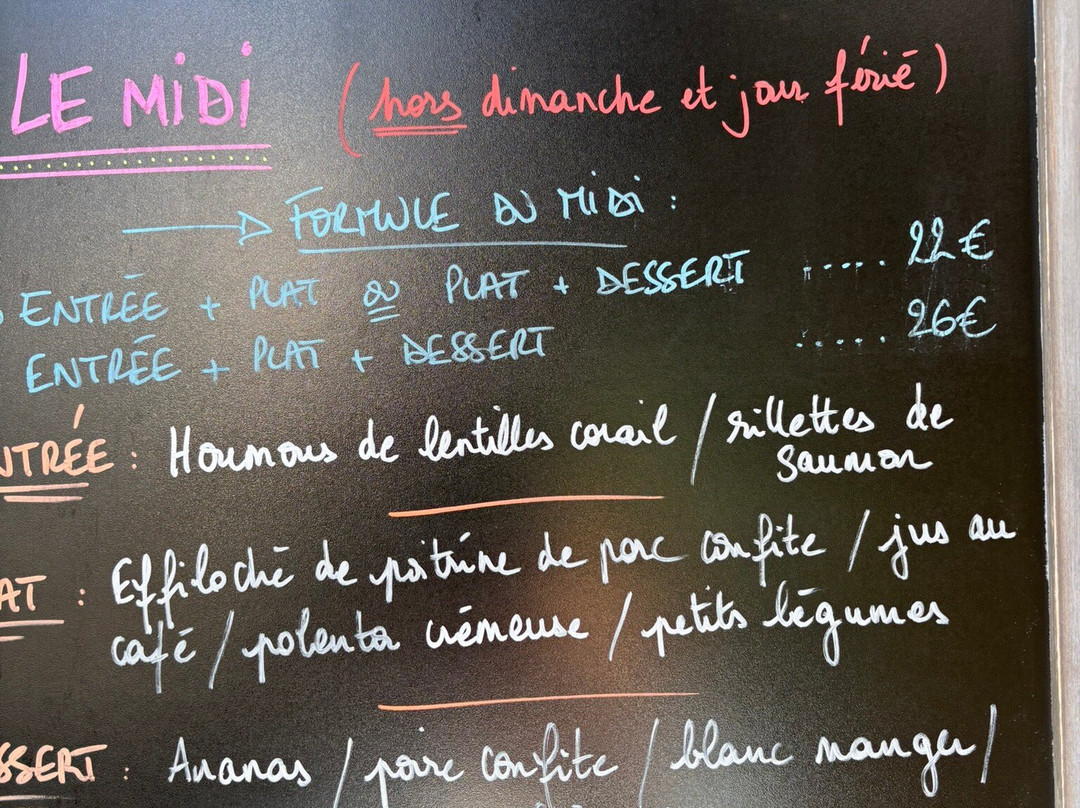 LE MIDI (hors dimanche et jour férié)
FORMULE DU MIDI :
ENTRÉE + PLAT OU PLAT + DESSERT ..... 22€
ENTRÉE + PLAT + DESSERT ..... 26€
NTRÉE : Houmous de lentilles corail / rillettes de
saumon
AT : Effiloché de poitrine de porc confite / jus au
café / polenta crémeuse / petits légumes
SSERT : Ananas / poire confite / blanc manger /